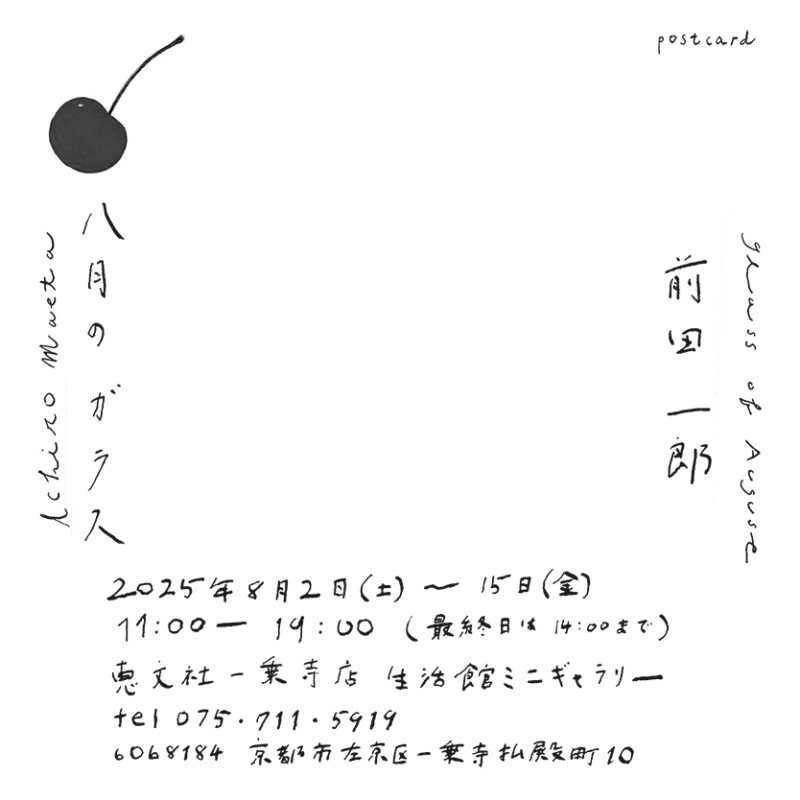 postcard
八月のガラス
Ichiro Maeta
前田一郎
glass of August
2025年8月2日(土)〜15日(金)
11:00ー19:00 (最終日は14:00まで)
恵文社一乗寺店 生活館ミニギャラリー
tel 075・711・5919
6068184 京都市左京区一乗寺払殿町10